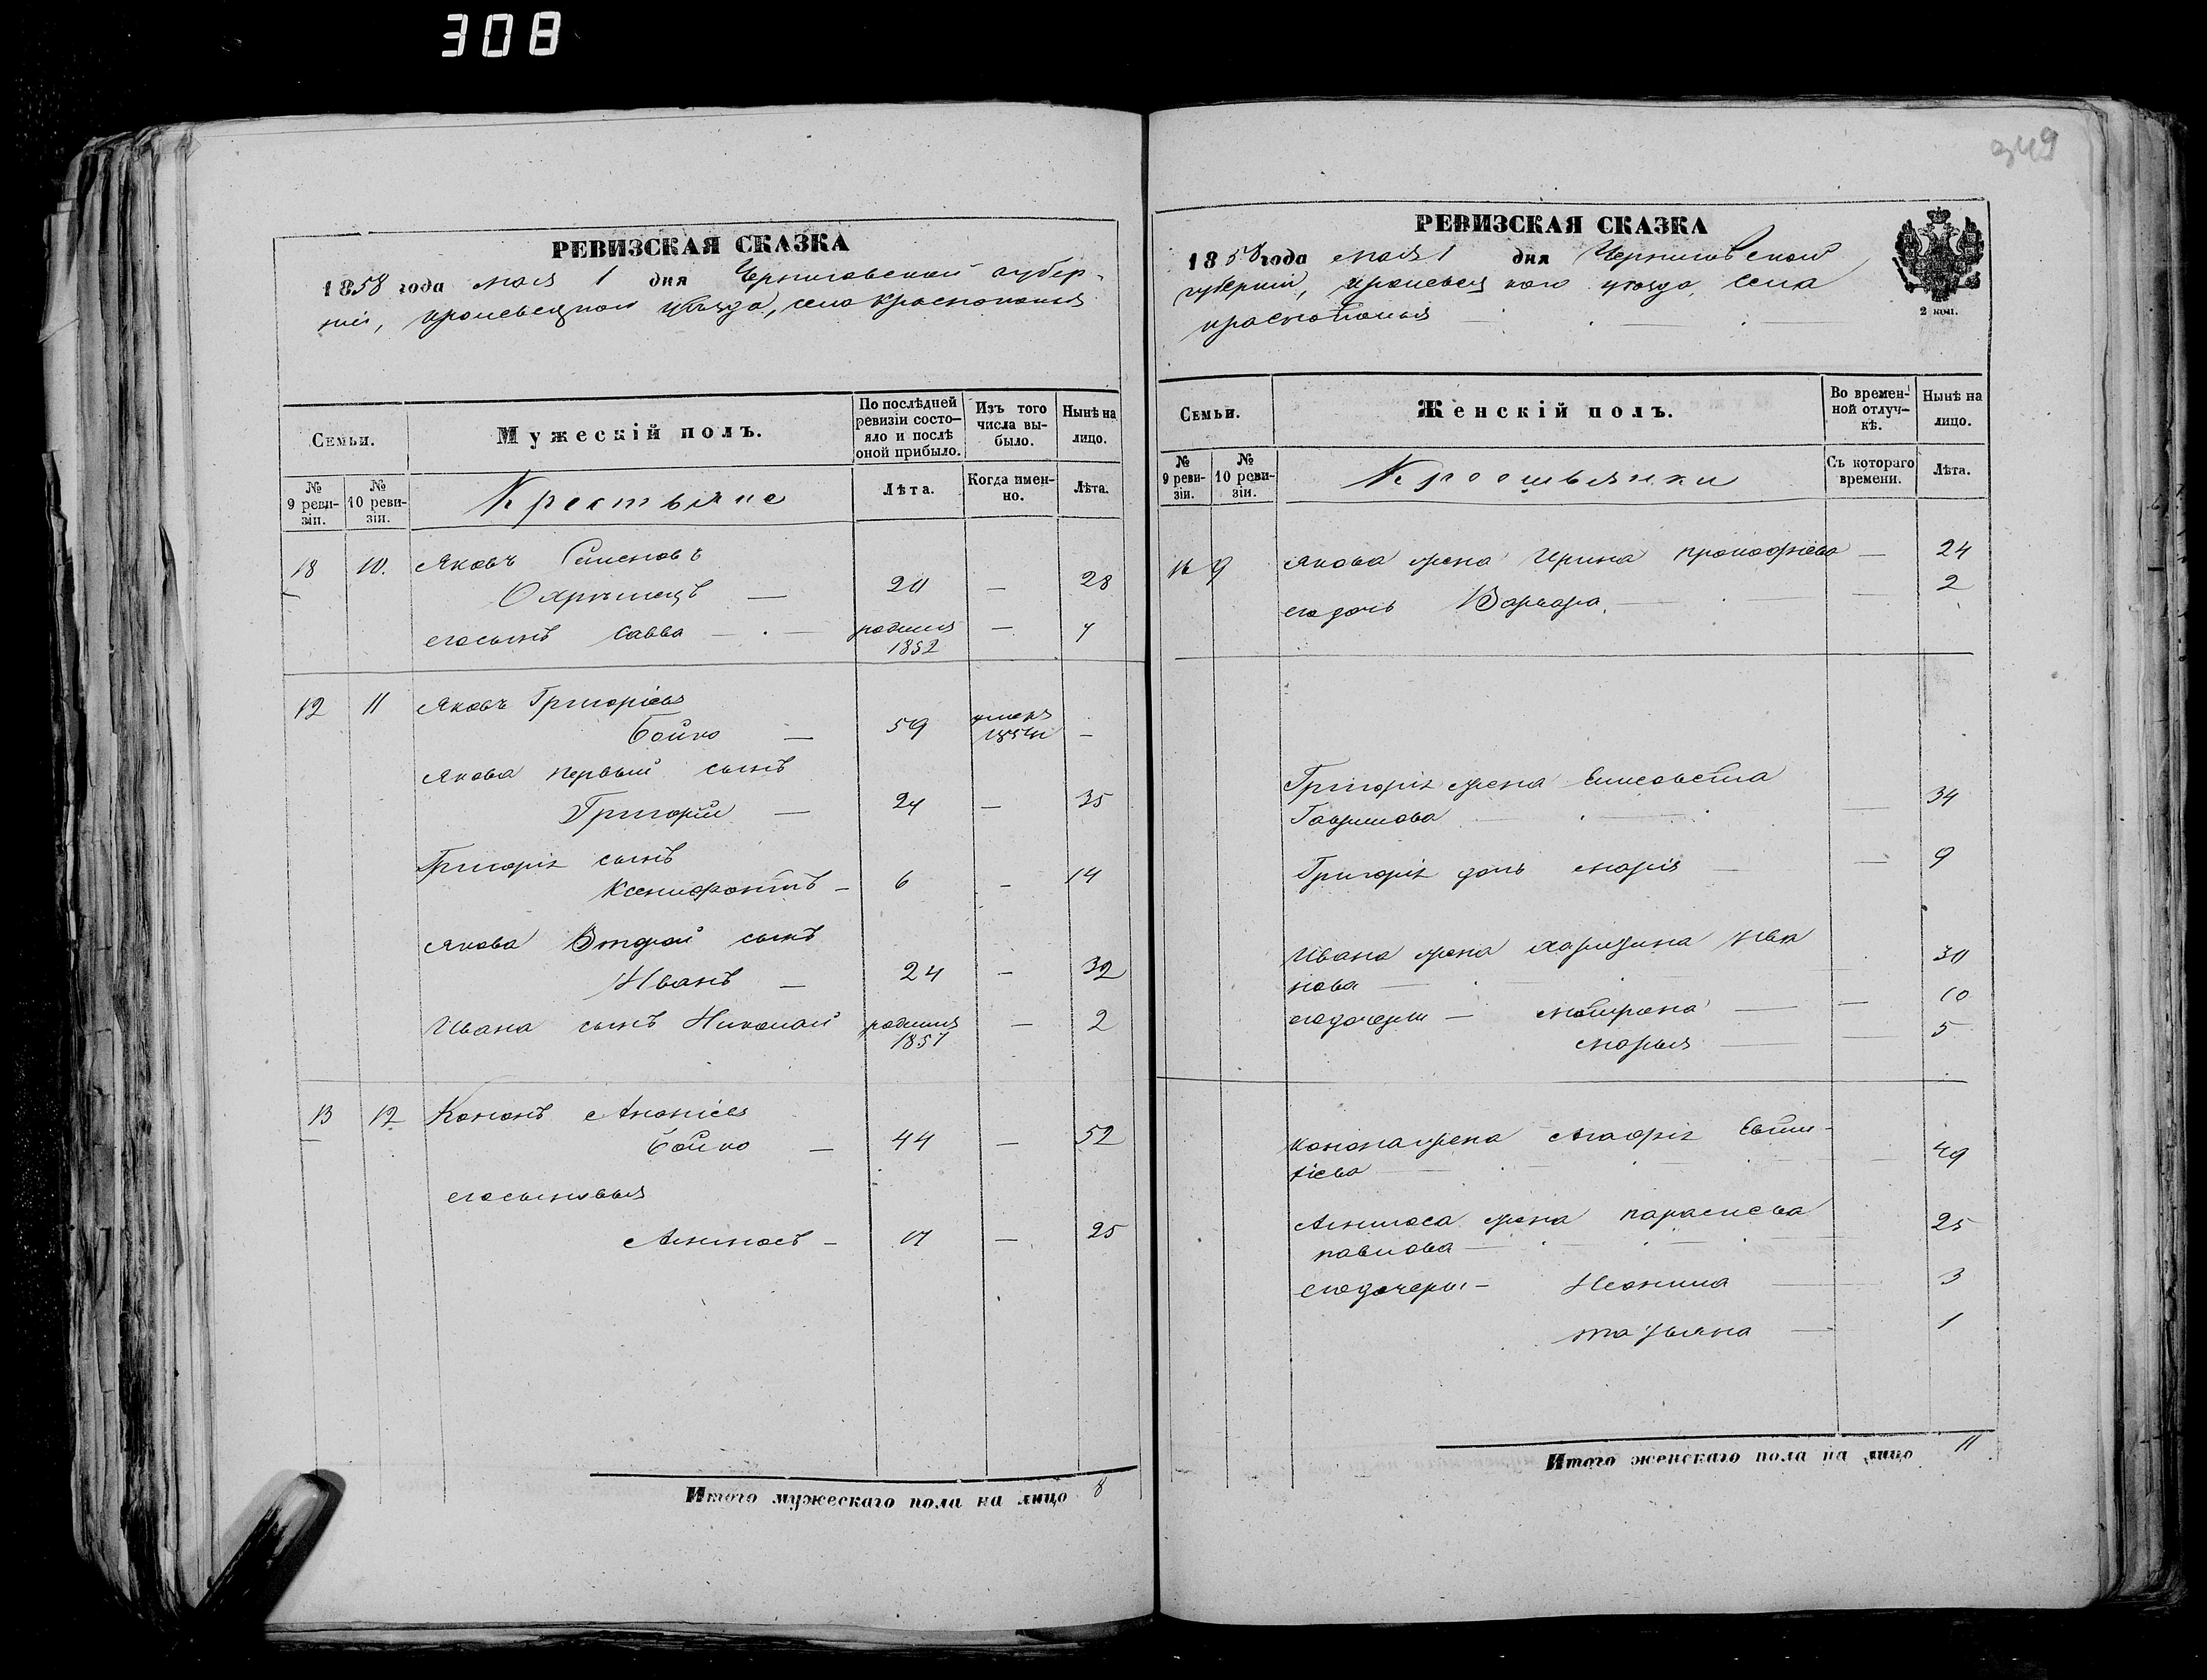 308
349
РЕВИЗСКАЯ СКАЗКА
1858 года мая 1 дня Черниговской губер-
нiи, кролевецкого уѣзда, села краснополья
Семьи.
Мужескiй полъ.
По послѣдней ревизiи состо-яло и послѣ оной прибыло.
Изъ того числа вы-было.
Нынѣ на лицо.
№ 9 реви-зiи.
№ 10 реви-зiи.
Крестьяне
Лѣта.
Когда имен-но.
Лѣта.
18 10. Яковъ Семеновъ
20 — 28
егосынъ Савва — родился 1852 — 7
12 11 Яковъ Григорiевъ
Бойко — 59 умеръ —
Якова первый сынъ
Григорiй — 27 — 35
Григорiя сынъ
Ксенофонтъ — 6 — 14
Якова Второй сынъ
Иванъ — 24 — 32
Ивана сынъ Николай родился 1857 — 2
13 12 Кононъ Ананiевъ
Бойко — 44 — 52
егосыновья
17 — 25
Итого мужескаго пола на лицо 8
РЕВИЗСКАЯ СКАЗКА
1858 года мая 1 дня Черниговской
губернiи, кролевецкого уѣзда, села
краснополья
2 коп.
Семьи.
Женскiй полъ.
Во времен-ной отлуч-кѣ.
Нынѣ на лицо.
№ 9 реви-зiи.
№ 10 реви-зiи.
Крестьянки
Съ котораго времени.
Лѣта.
9 Якова жена Ирина прокофiева — 24
егодочь Варвара — 2
Григорiя жена Елисавета
Гаврилова — 34
Григорiя дочь Марiя — 9
Ивана жена Ива
нова — 30
егодочери — Матрона — 10
Марья — 5
Конона жена Агафiя Евти-
хiева — 49
жена параскева
павлова — 25
егодочери — 3
татьяна — 1
Итого женскаго пола на лицо 11